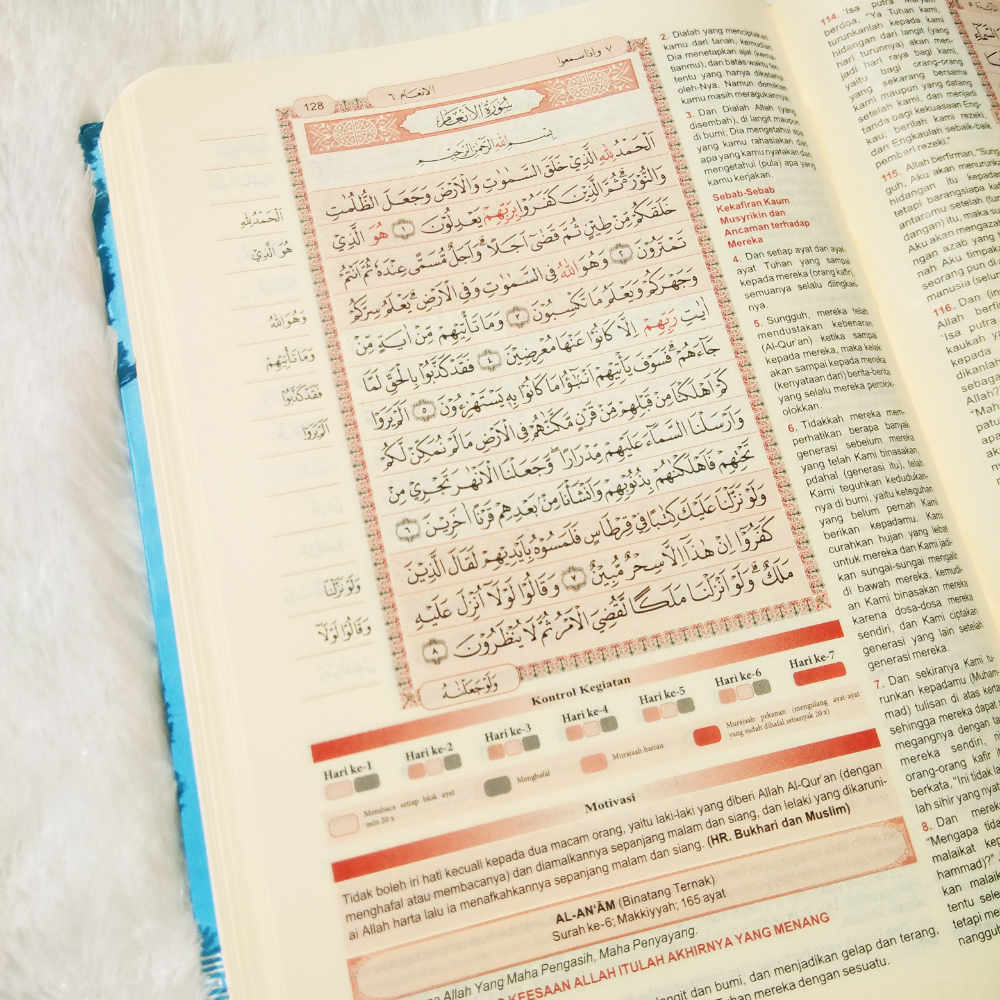 ٧ واذا سمعوا
الانعام ٦
128
سُوْرَةُ الْاَنْعَامِ
بِسْمِ اللّٰهِ الرَّحْمٰنِ الرَّحِيْمِ
اَلْحَمْدُ لِلّٰهِ الَّذِيْ خَلَقَ السَّمٰوٰتِ وَالْاَرْضَ وَجَعَلَ الظُّلُمٰتِ
وَالنُّوْرَ ەۗ ثُمَّ الَّذِيْنَ كَفَرُوْا بِرَبِّهِمْ يَعْدِلُوْنَ ١ هُوَ الَّذِيْ
خَلَقَكُمْ مِّنْ طِيْنٍ ثُمَّ قَضٰٓى اَجَلًا ۗوَاَجَلٌ مُّسَمًّى عِنْدَهٗ ثُمَّ اَنْتُمْ
تَمْتَرُوْنَ ٢ وَهُوَ اللّٰهُ فِى السَّمٰوٰتِ وَفِى الْاَرْضِۗ يَعْلَمُ سِرَّكُمْ
وَجَهْرَكُمْ وَيَعْلَمُ مَا تَكْسِبُوْنَ ٣ وَمَا تَأْتِيْهِمْ مِّنْ اٰيَةٍ مِّنْ
اٰيٰتِ رَبِّهِمْ اِلَّا كَانُوْا عَنْهَا مُعْرِضِيْنَ ٤ فَقَدْ كَذَّبُوْا بِالْحَقِّ لَمَّا
جَاۤءَهُمْۗ فَسَوْفَ يَأْتِيْهِمْ اَنْۢبٰۤؤُا مَا كَانُوْا بِهٖ يَسْتَهْزِءُوْنَ ٥ اَلَمْ يَرَوْا
كَمْ اَهْلَكْنَا مِنْ قَبْلِهِمْ مِّنْ قَرْنٍ مَّكَّنّٰهُمْ فِى الْاَرْضِ مَا لَمْ نُمَكِّنْ لَّكُمْ
وَاَرْسَلْنَا السَّمَاۤءَ عَلَيْهِمْ مِّدْرَارًا ۖوَّجَعَلْنَا الْاَنْهٰرَ تَجْرِيْ مِنْ
تَحْتِهِمْ فَاَهْلَكْنٰهُمْ بِذُنُوْبِهِمْ وَاَنْشَأْنَا مِنْۢ بَعْدِهِمْ قَرْنًا اٰخَرِيْنَ ٦
وَلَوْ نَزَّلْنَا عَلَيْكَ كِتٰبًا فِيْ قِرْطَاسٍ فَلَمَسُوْهُ بِاَيْدِيْهِمْ لَقَالَ الَّذِيْنَ
كَفَرُوْٓا اِنْ هٰذَآ اِلَّا سِحْرٌ مُّبِيْنٌ ٧ وَقَالُوْا لَوْلَآ اُنْزِلَ عَلَيْهِ
مَلَكٌ ۗوَلَوْ اَنْزَلْنَا مَلَكًا لَّقُضِيَ الْاَمْرُ ثُمَّ لَا يُنْظَرُوْنَ ٨
وَلَوْ جَعَلْنٰهُ
اَلْحَمْدُ لِلّٰهِ
هُوَ الَّذِيْ
وَهُوَ اللّٰهُ
وَمَا تَأْتِيْهِمْ
فَقَدْ كَذَّبُوْا
اَلَمْ يَرَوْا
وَلَوْ نَزَّلْنَا
وَقَالُوْا لَوْلَآ
Kontrol Kegiatan
Hari ke-1 Hari ke-2 Hari ke-3 Hari ke-4 Hari ke-5 Hari ke-6 Hari ke-7
Membaca setiap blok ayat
min 20 x
Menghafal
Murajaah harian
Murajaah pekanan (mengulang ayat-ayat
yang sudah dihafal sebanyak 20 x)
Motivasi
Tidak boleh iri hati kecuali kepada dua macam orang, yaitu laki-laki yang diberi Allah Al-Qur'an (dengan
menghafal atau membacanya) dan diamalkannya sepanjang malam dan siang, dan lelaki yang dikaruni-
ai Allah harta lalu ia menafkahkannya sepanjang malam dan siang. (HR. Bukhari dan Muslim)
AL-AN'ĀM (Binatang Ternak)
Surah ke-6; Makkiyyah; 165 ayat
Allah Yang Maha Pengasih, Maha Penyayang.
KEESAAN ALLAH ITULAH AKHIRNYA YANG MENANG
langit dan bumi, dan menjadikan gelap dan terang,
Tuhan mereka dengan sesuatu.
2. Dialah yang menciptakan
kamu dari tanah, kemudian
Dia menetapkan ajal (kema-
tianmu), dan batas waktu ter-
tentu yang hanya diketahui
oleh-Nya. Namun demikian
kamu masih meragukannya.
3. Dan Dialah Allah (yang
disembah), di langit maupun
di bumi. Dia mengetahui apa
yang kamu rahasiakan dan
apa yang kamu nyatakan dan
mengetahui (pula) apa yang
kamu kerjakan.
Sebab-Sebab
Kekafiran Kaum
Musyrikin dan
Ancaman terhadap
Mereka
4. Dan setiap ayat dari ayat-
ayat Tuhan yang sampai
kepada mereka (orang kafir),
semuanya selalu diingkari-
nya.
5. Sungguh, mereka telah
mendustakan kebenaran
(Al-Qur'an) ketika sampai
kepada mereka, maka kelak
akan sampai kepada mereka
(kenyataan dari) berita-berita
yang selalu mereka perolok-
olokkan.
6. Tidakkah mereka mem-
perhatikan berapa banyak
generasi sebelum mereka
yang telah Kami binasakan,
pdahal (generasi itu), telah
Kami teguhkan keduduk-
nya di bumi, yaitu keteguhan
yang belum pernah Kami
berikan kepadamu. Kami
curahkan hujan yang lebat
untuk mereka dan Kami jadi-
kan sungai-sungai mengalir
di bawah mereka, kemudi-
an Kami binasakan mereka
karena dosa-dosa mereka
sendiri, dan Kami ciptakan
generasi yang lain setelah
generasi mereka.
7. Dan sekiranya Kami tu-
runkan kepadamu (Muham-
mad) tulisan di atas kertas
sehingga mereka dapat
megangnya dengan
mereka sendiri,
orang-orang kafir
berkata, "Ini tidak
lah sihir yang
8. Dan mereka
"Mengapa tidak
malaikat
hammad)?"
kan malaikat
tentu
tetapi
114. 'Isa putra Maryam
berdoa, "Ya Tuhan kami,
turunkanlah kepada kami
hidangan dari langit (yang
hari turunnya) akan men-
jadi hari raya bagi kami,
yaitu bagi orang-orang
yang sekarang bersama
kami maupun yang datang
setelah kami, dan menjadi
tanda bagi kekuasaan Eng-
kau; berilah kami rezeki,
dan Engkaulah sebaik-baik
pemberi rezeki."
115. Allah berfirman, "Sung-
guh, Aku akan menurunkan
hidangan itu kepada
tetapi barangsiapa kafir
antaramu setelah
dangan) itu, maka
Aku akan mengazab
ngan azab yang
nah Aku timpakan
seorang pun di
manusia
116. Dan
Allah
'Isa putra
kaukah
kepada
dikanlah
sebagai
Allah?"